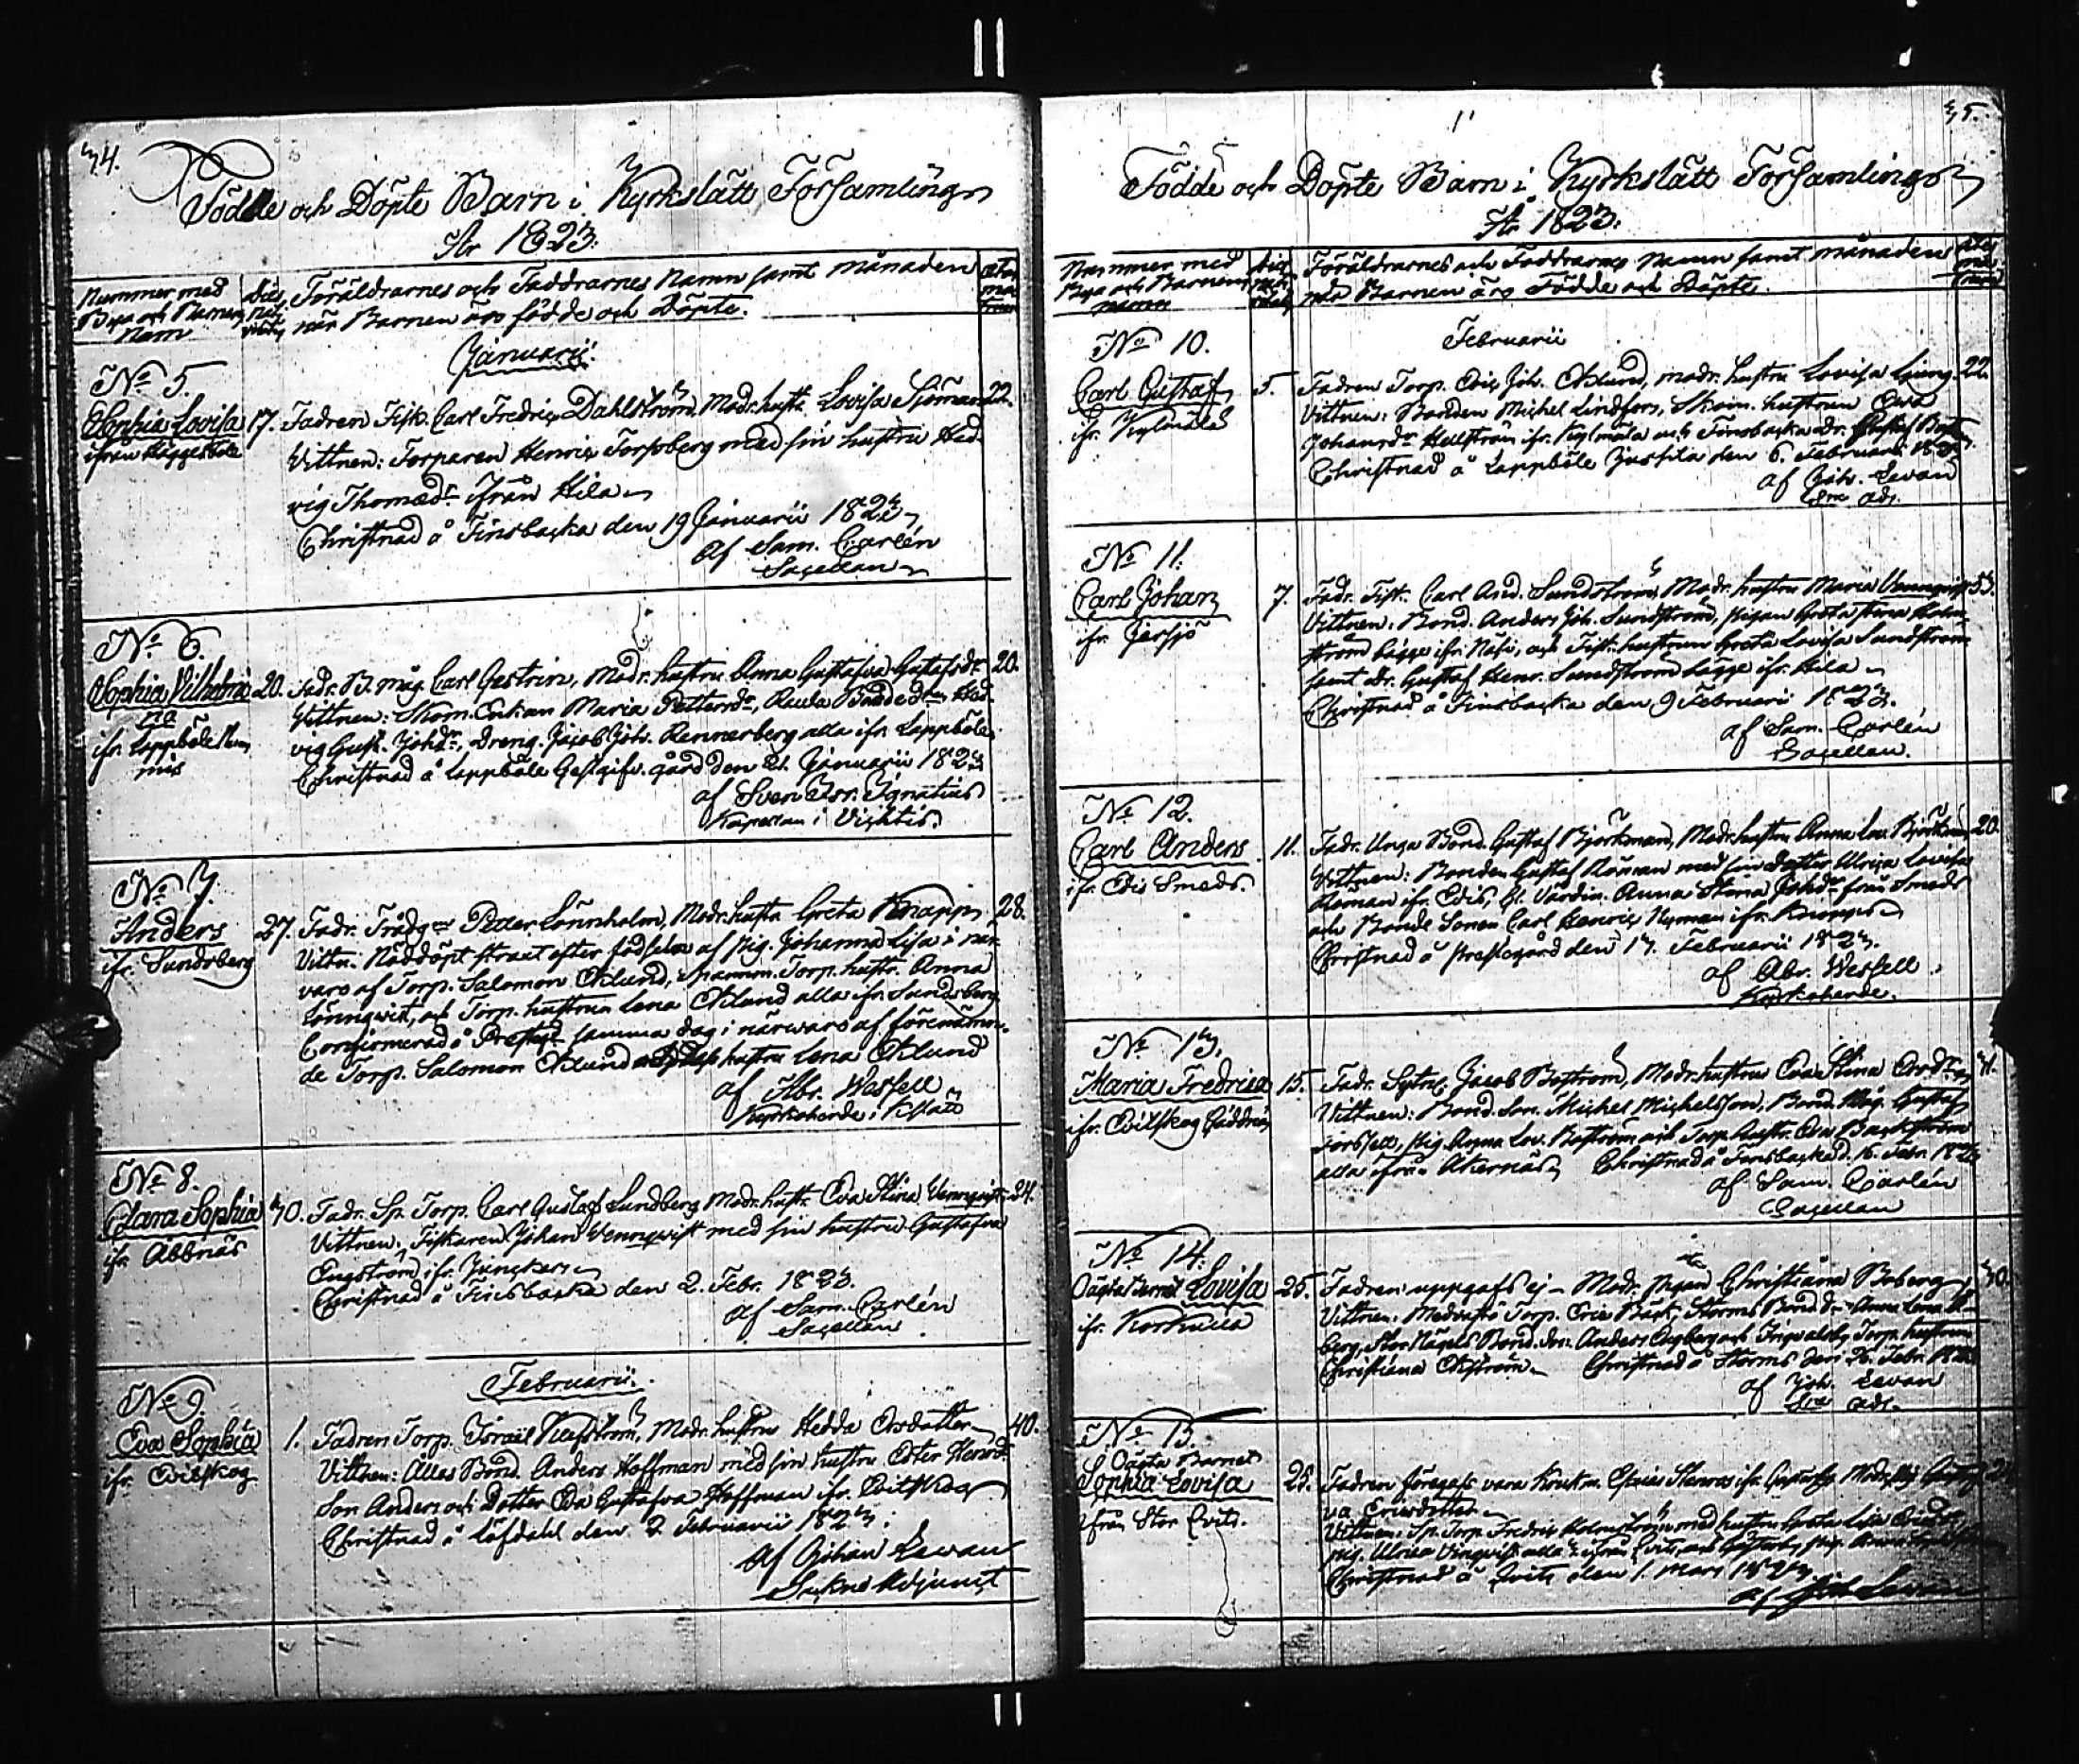 34.
Födde och Döpte Barn i Kyrkslätt Församling
År 1823.
Nummer med
Bya och Barnens
Namn
Dies
nati-
vitatis
Föräldrarnes och Faddrarnes Namn samt månaden
när Barnen äro födde och Döpte.
Januarii.
No 5.
Sophia Lovisa
ifrån Häggesböle
17.
Fadren Fisk. Carl Fredric Dahlström, Modr. hust. Lovisa Sjöman
22.
Vittnen: Torparen Henric Forssberg med sin hustru Hed-
vig Thomædr ifrån Kila
Christnad å Finsbacka den 19 Januarii 1823
af Sam. Carlén
Sacellan
No 6.
Sophia Vilhelmi
na
ifr. Lappböle
20.
Fadr. B. måg Carl Gestrin, Modr. hustru Anna Gustafva Gustafsdr
20.
Vittnen: Skom. Enkan Maria Pettersdr, Bonded. Hed-
vig Gust. Johdr, Dreng. Jacob Joh. Rennerberg alla ifr. Lappböle
Christnad å Lappböle Gestgifv. gård den 21. Januarii 1823
af Sven Isr. Ignatius
Kapellan i Vichtis.
No 7.
Anders
ifr. Sundsberg
27.
Fadr. Trädg Petter Lönnholm, Modr. hustr. Greta Knapp
28.
Vittn: Nöddöpt straxt efter födseln af pig. Johanna Lisa i när-
varo af Torp. Salomon Eklund, Torp. hustr. Anna
Lönnqvist, och Torp. hustrun Lena Eklund alla ifr. Sundsberg
Confirmerad å Prestgd samma dag i närwaro af förenämn-
de Torp. Salomon Eklund hustru Lena Eklund
af Abr. Wesfell
Kyrkoherde i Kslätt
No 8.
Clara Sophia
ifr. Åbbnäs
30.
Fadr. Sp. Torp. Carl Gustaf Lundberg Modr. hustr. Eva Stina Vennqvist
24.
Vittnen: Fiskaren Johan Vennqvist med sin hustru Gustafva
Engström ifr. Junckers
Christnad å Finsbacka den 2. Febr. 1823.
af Sam. Carlén
Sacellan
Februarii.
No 9.
Eva Sophia
ifr. Evitskog
1.
Fadren Torp. Israel, Modr. hustru Hedda Ersdotter
40.
Vittnen: Bond. Anders Hoffman med sin hustru Ester Henrdr
Son Anders och Dotter Eva Gustafva Hoffman ifr. Evitskog
Christnad å Löfdahl den 2. Februarii 1823.
af Johan Levan
Adjunct
35.
Födde och Döpte Barn i Kyrkslätt Församling
År 1823.
Nummer med
Bya och Barnens
namn
Föräldrarnes och Faddrarnes namn samt månaden
när Barnen äro Födde och Döpte.
Februarii
No 10.
Carl Gustaf
ifr. Kylmälä
5.
Fadren Torp. Eric Joh. Eklund, modr. hustru Lovisa Ljung.
22.
Vittnen: Bonden Michel Lindfors, Skom. hustrun Eva
Johansdr Hellström ifr. Kylmälä och Finsbacka dr. Gustaf
Christnad å Lappböle den 6. Februarii 1823.
af Joh. Levan
adj.
No 11.
Carl Johan
ifr. Jersjö
7.
Fadr. Fisk. Carl And. Sundström, Modr. hustru Maria Vennqvist
33.
Vittnen: Bond. Anders Joh. Sundström, pigan Greta Stina Holm-
ström bägge ifr. Näsi, och Fisk. hustrun Greta Lovisa Sundström
samt dr. Gustaf Henr. Sundström bägge ifr. Kila
Christnad å Finsbacka den 9 Februarii 1823.
af Sam. Carlén
Sacellan.
No 12.
Carl Anders
ifr. Edis Smeds.
11.
Fadr. Unga Bond. Gustaf Björkman, Modr. hustru Anna Lov. Björkman
20.
Vittnen: Bonden Gustaf Röman med sin dotter Ulrica Lovisa
Röman ifr. Edis, Gl. Värdin. Anna Stina Johdr från Smeds
och Bonde Sonen Carl Henric Nyman ifr. Knopps
Christnad å Prestegård den 13. Februarii 1823.
af Abr. Wesfell
Kyrkoherde.
No 13.
Maria Fredrica
ifr. Evitskog
15.
Fadr. Sytn. Jacob Boström, Modr. hustru Eva Stina Ersdr
41.
Vittnen: Bond. Son. Michel Michelsson, Bond. Måg. Gustaf
Forssell, pig. Anna Lov. Boström och Torp. hustr. Eva Backström
alla ifrån Åkernäs Christnad å Finsbacka d. 16. Febr. 1823
af Sam. Carlén
Sacellan
No 14.
Oägta barnet Lovisa
ifr. Korkulla
25.
Fadren uppgafs ej – Modr. Pigan Christiana Boberg
30.
Vittnen: Torp. Eric Bärk, Storms Bond. dr Anna Lena
berg, Stor Nägels Bond. Son. Anders Engberg och Ingvalsby Torp. hustrun
Christiana Ekström Christnad å Storms den 26. Febr. 1823
af Joh. Levan
adj.
No 15.
Oägta Barnet
Sophia Lovisa
från Stor Evits.
25.
Fadren föregafs vara Modr. Pig. Gustaf-
va Ericsdotter
Vittnen: Sp. Torp. Fredric Holmström med hustru Greta Lisa
pig. Ulrica
Christnad å Evits den 1. Mars 1823
af Joh. Levan